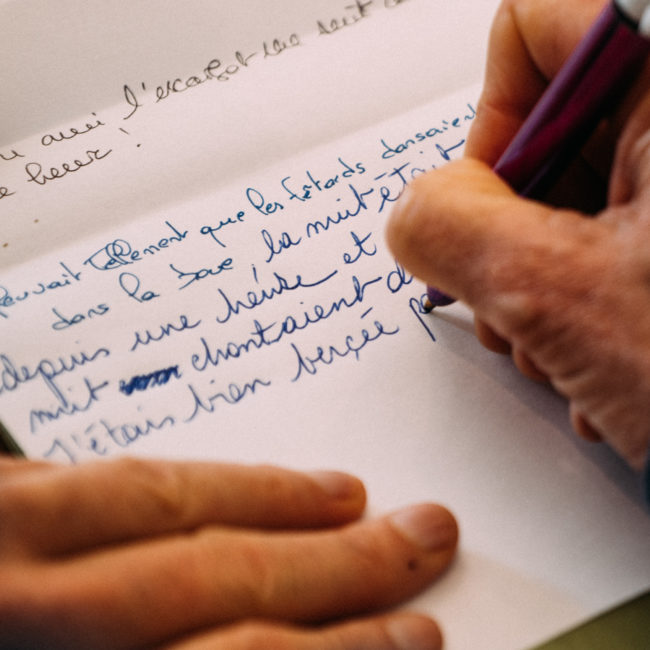 aussi l'escargot
heure !
pleuvait tellement que les fêtards dansaient
dans la boue, la nuit était
depuis une heure et
nuit chantaient d
J'étais bien bercée p